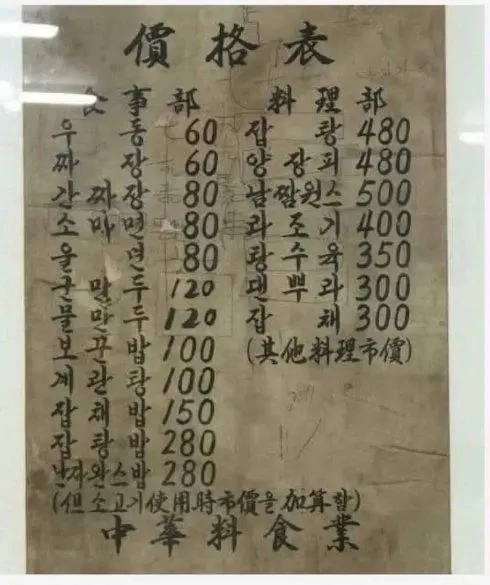 價格表
食事部
우동 60
짜장 60
간짜장 80
소마면 80
울면 80
군만두 120
물만두 120
보꾼밥 100
계란탕 100
잡채밥 150
잡탕밥 280
난자완스밥 280
(但 소고기使用時市價을加算함)
料理部
잡탕 480
양장피 480
500
라조기 400
탕수육 350
댄뿌라 300
잡채 300
(其他料理市價)
中華料食業